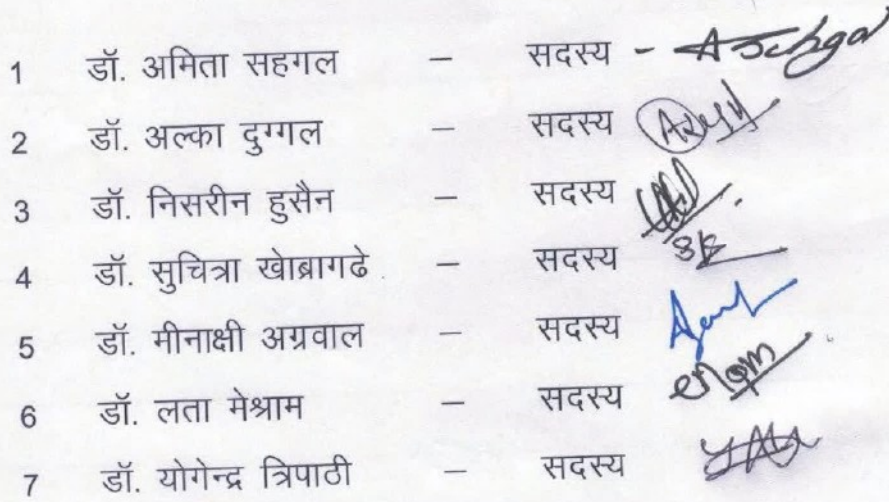 1 डॉ. अमिता सहगल – सदस्य - ASehgal
2 डॉ. अल्का दुग्गल – सदस्य
3 डॉ. निसरीन हुसैन – सदस्य
4 डॉ. सुचित्रा खेाब्रागढे – सदस्य
5 डॉ. मीनाक्षी अग्रवाल – सदस्य
6 डॉ. लता मेश्राम – सदस्य
7 डॉ. योगेन्द्र त्रिपाठी – सदस्य